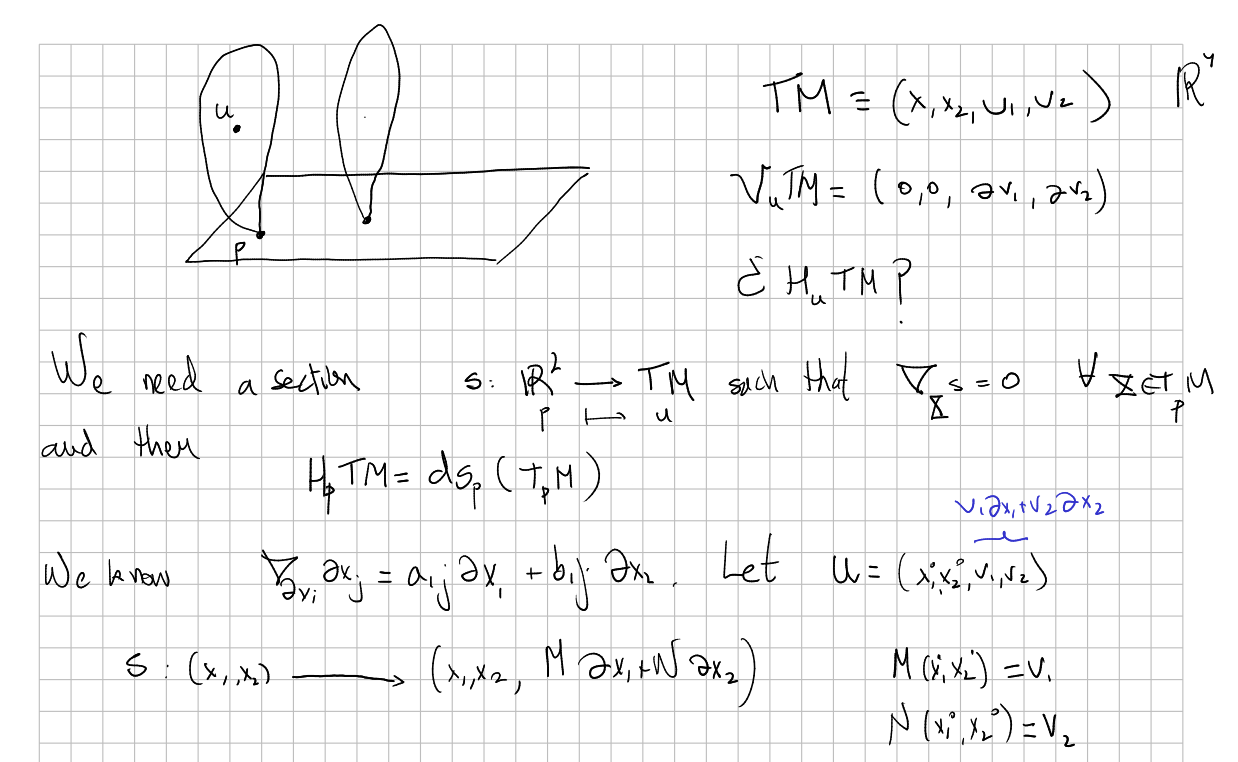 u
p
TM ≡ (x, x₂, v₁, v₂) ℝ⁴
VᵤTM = (0,0, ∂v₁, ∂v₂)
¿ HᵤTM ?
We need a section s: ℝ² → TM such that ∇_X s = 0 ∀ X ∈ TₚM
p ↦ u
and then
HₚTM = dsₚ (TₚM)
v₁∂x₁+v₂∂x₂
We know ∇_∂xᵢ ∂xⱼ = aᵢⱼ ∂x₁ + bᵢⱼ ∂x₂. Let u = (x₁°,x₂°,v₁,v₂)
s : (x₁,x₂) → (x₁,x₂, M ∂x₁+N ∂x₂) M(x₁°,x₂°) = v₁
N(x₁°,x₂°) = v₂